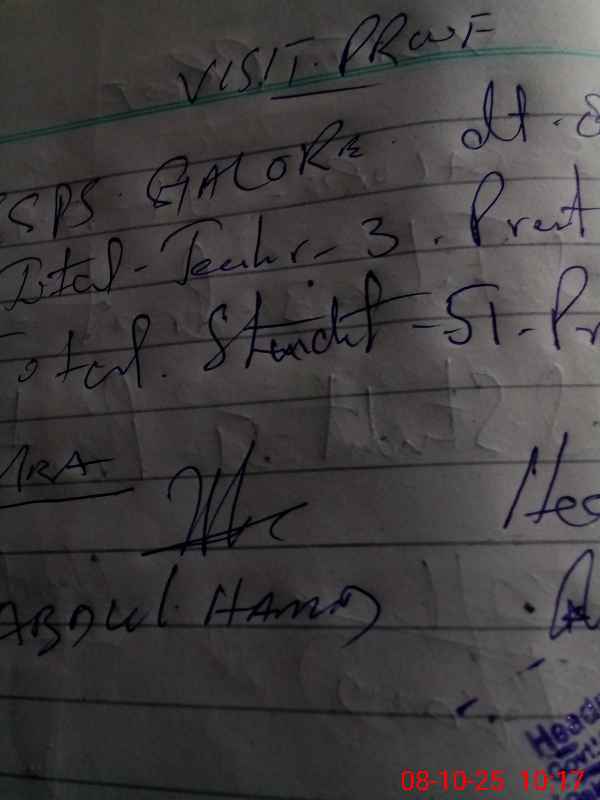 VISIT. PROOF
GSPS. GALORE. dt. 8
Total - Teachr - 3. Prent
Total. Studet - 51. Pr
MRA. Hea
ABDUL. HAMID
Head
Govt:
08-10-25 10:17